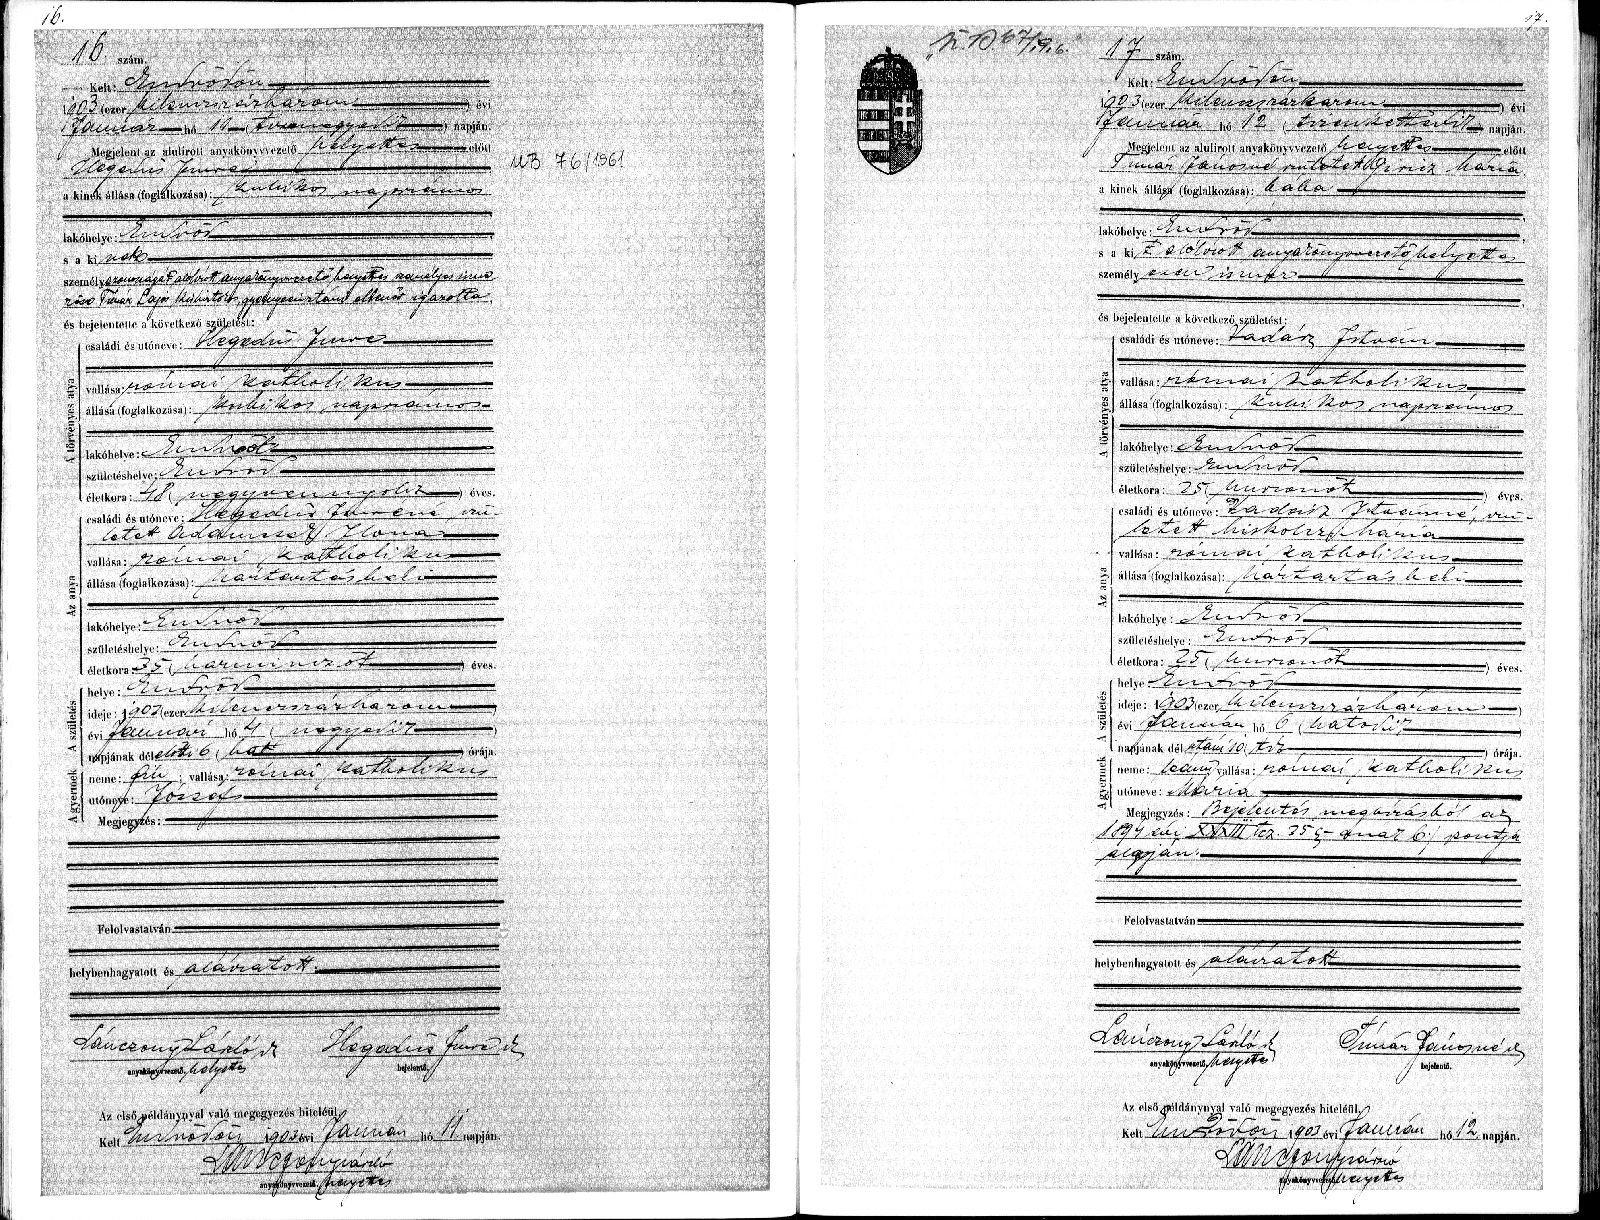 16.
16 szám.
Kelt: Endrődön
1903 (ezer kilenczszázhárom) évi
Január hó 11 (tizenegyedik) napján.
Megjelent az alulirott anyakönyvvezető helyettes előtt
Hegedüs Imre
MB 76/1961
a kinek állása (foglalkozása): kubikos napszámos
lakóhelye: Endrőd
s a ki nek
személyazonosságát alólirott anyakönyvvezető helyettes személyes isme
rőse Timár Lajos
igazolta,
és bejelentette a következő születést:
A törvényes atya
családi és utóneve: Hegedüs Imre
vallása: római katholikus
állása (foglalkozása): kubikos napszámos
lakóhelye: Endrőd
születéshelye: Endrőd
életkora: 48 (negyvennyolcz) éves.
Az anya
családi és utóneve: Hegedüs Imréné szü-
letett Ilona
vallása: római katholikus
állása (foglalkozása): háztartásbeli
lakóhelye: Endrőd
születéshelye: Endrőd
életkora: 35 (harminczöt) éves.
A születés
helye: Endrőd
ideje: 1903 (ezer kilenczszázhárom)
évi Január hó 4 (negyedik)
napjának dél előtti 6 (hat) órája.
A gyermek
neme: fiu; vallása: római katholikus
utóneve: József
Megjegyzés:
Felolvastatván
helybenhagyatott és aláiratott.
Lánczony László sk Hegedüs Imre sk
anyakönyvvezető. helyettes bejelentő.
Az első példánynyal való megegyezés hiteléül.
Kelt Endrődön 1903 évi Január hó 11 napján.
Lánczony László
anyakönyvvezető. helyettes
17.
17 szám.
Kelt: Endrődön
1903 (ezer kilenczszázhárom) évi
Január hó 12 (tizenkettedik) napján.
Megjelent az alulirott anyakönyvvezető helyettes előtt
Timár Jánosné született Mária
a kinek állása (foglalkozása): bába
lakóhelye: Endrőd
s a ki t alólirott anyakönyvvezető helyettes
személyesen ismer
és bejelentette a következő születést:
A törvényes atya
családi és utóneve: Vadász István
vallása: római katholikus
állása (foglalkozása): kubikos napszámos
lakóhelye: Endrőd
születéshelye: Endrőd
életkora: 25 (huszonöt) éves.
Az anya
családi és utóneve: Vadász Istvánné, szü-
letett Miskolczi Mária
vallása: római katholikus
állása (foglalkozása): háztartásbeli
lakóhelye: Endrőd
születéshelye: Endrőd
életkora: 25 (huszonöt) éves.
A születés
helye Endrőd
ideje: 1903 (ezer kilenczszázhárom)
évi Január hó 6 (hatodik)
napjának dél utáni 10 tiz órája.
A gyermek
neme: leány vallása: római katholikus
utóneve: Mária
Megjegyzés: Bejelentés megbizásból az
1894 évi XXXIII tcz. 35 §-ának 6.) pontja
alapján.
Felolvastatván
helybenhagyatott és aláiratott
Lánczony László sk Timár Jánosné sk
anyakönyvvezető. helyettes bejelentő.
Az első példánynyal való megegyezés hiteléül.
Kelt Endrődön 1903 évi Január hó 12 napján.
Lánczony László
anyakönyvvezető helyettes